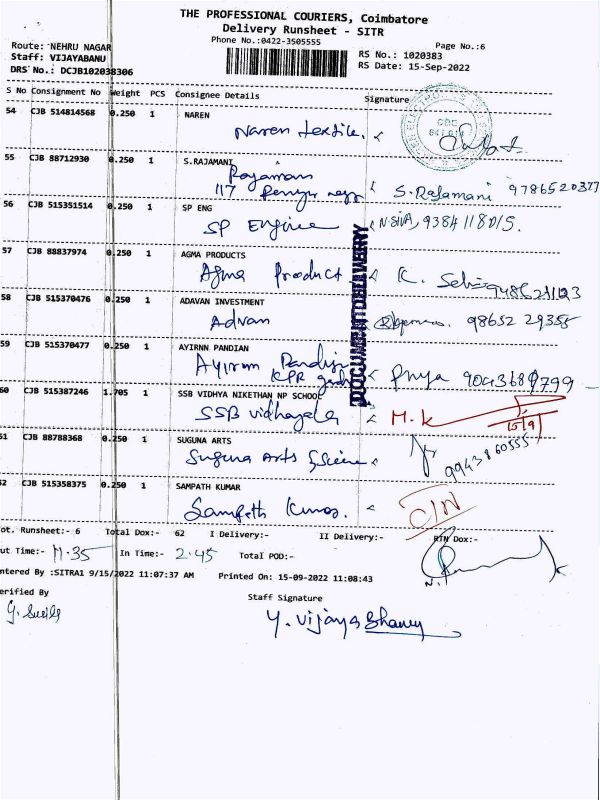 THE PROFESSIONAL COURIERS, Coimbatore
Delivery Runsheet - SITR
Phone No.:0422-3505555
Page No.:6
Route: NEHRU NAGAR
Staff: VIJAYABANU
DRS No.: DCJB102038306
RS No.: 1020383
RS Date: 15-Sep-2022
S No Consignment No Weight PCS Consignee Details Signature
54 CJB 514814568 0.250 1 NAREN
Naren textile.
CBE
55 CJB 88712930 0.250 1 S.RAJAMANI
Rajamani
117
S. Rajamani 9786520377
56 CJB 515351514 0.250 1 SP ENG
SP Engine
N.SIVA, 9384118015.
57 CJB 88837974 0.250 1 AGMA PRODUCTS
Agma Product
K.
58 CJB 515370476 0.250 1 ADAVAN INVESTMENT
Advan
98652 29355
59 CJB 515370477 0.250 1 AYIRNN PANDIAN
KPR
Priya 9043689799
60 CJB 515387246 1.705 1 SSB VIDHYA NIKETHAN NP SCHOOL
SSB
M.K
15/9
61 CJB 88788368 0.250 1 SUGUNA ARTS
Suguna Arts & Science
9943860555
62 CJB 515358375 0.250 1 SAMPATH KUMAR
Sampath Kumar.
C/N
ot. Runsheet:- 6 Total Dox:- 62 I Delivery:- II Delivery:- RTN Dox:-
ut Time:- 11.35 In Time:- 2.45 Total POD:-
ntered By :SITRA1 9/15/2022 11:07:37 AM Printed On: 15-09-2022 11:08:43
erified By
Staff Signature
Y. Vijaya Bhanu